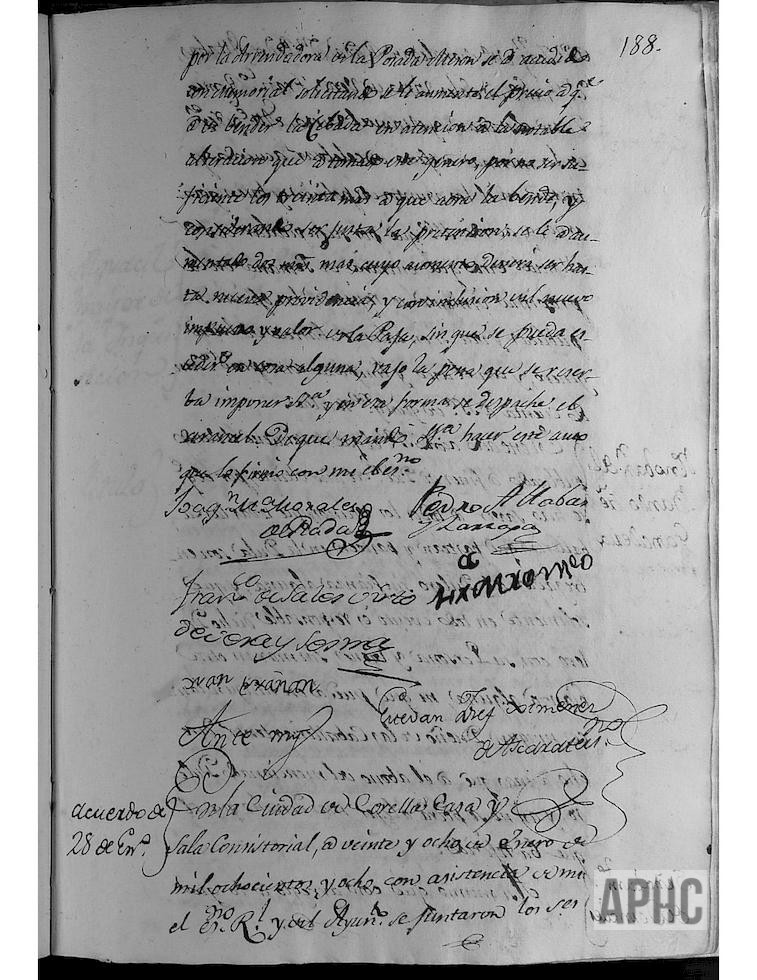 188.
por la Arrendadora de la Posada Meson se à acudido
con memorial solicitando se le aumente el precio à q.e
à de bender la Cebada en atencion à la notable
alteracion que à tomado este genero, por no ser su-
ficiente los treinta mrs à que aora la bende, y
considerando ser justa la pretension se le à au-
mentado dos mrs mas, cuyo aumento devera ser has-
ta nueva providencia, y con inclusion del nuevo
impuesto y valor de la Paja, sin que se pueda es-
ceder en cosa alguna, vajo la pena que se reser-
ba imponer S.ria y en esta forma se despache el
arancel. De que mandò S.ria hacer este auto
que lo firmò con mi el ess.no
Joaq.n M.a Morales
de Rada
Pedro Alaba
y Larraga
Fran.co de Sales Virto
de Vera y Serna
Antonio M.eo
Juan Grañan
Ante mi
Estevan Josef Ximenez
de Ascarate ss.no
Acuerdo de
28 de En.o
En la Ciudad de Corella Casa y
Sala Consistorial, à veinte y ocho de Enero de
mil ochocientos y ocho con asistencia de mi
el es.no R.l y del Ayun.to se juntaron los S.es
APHC